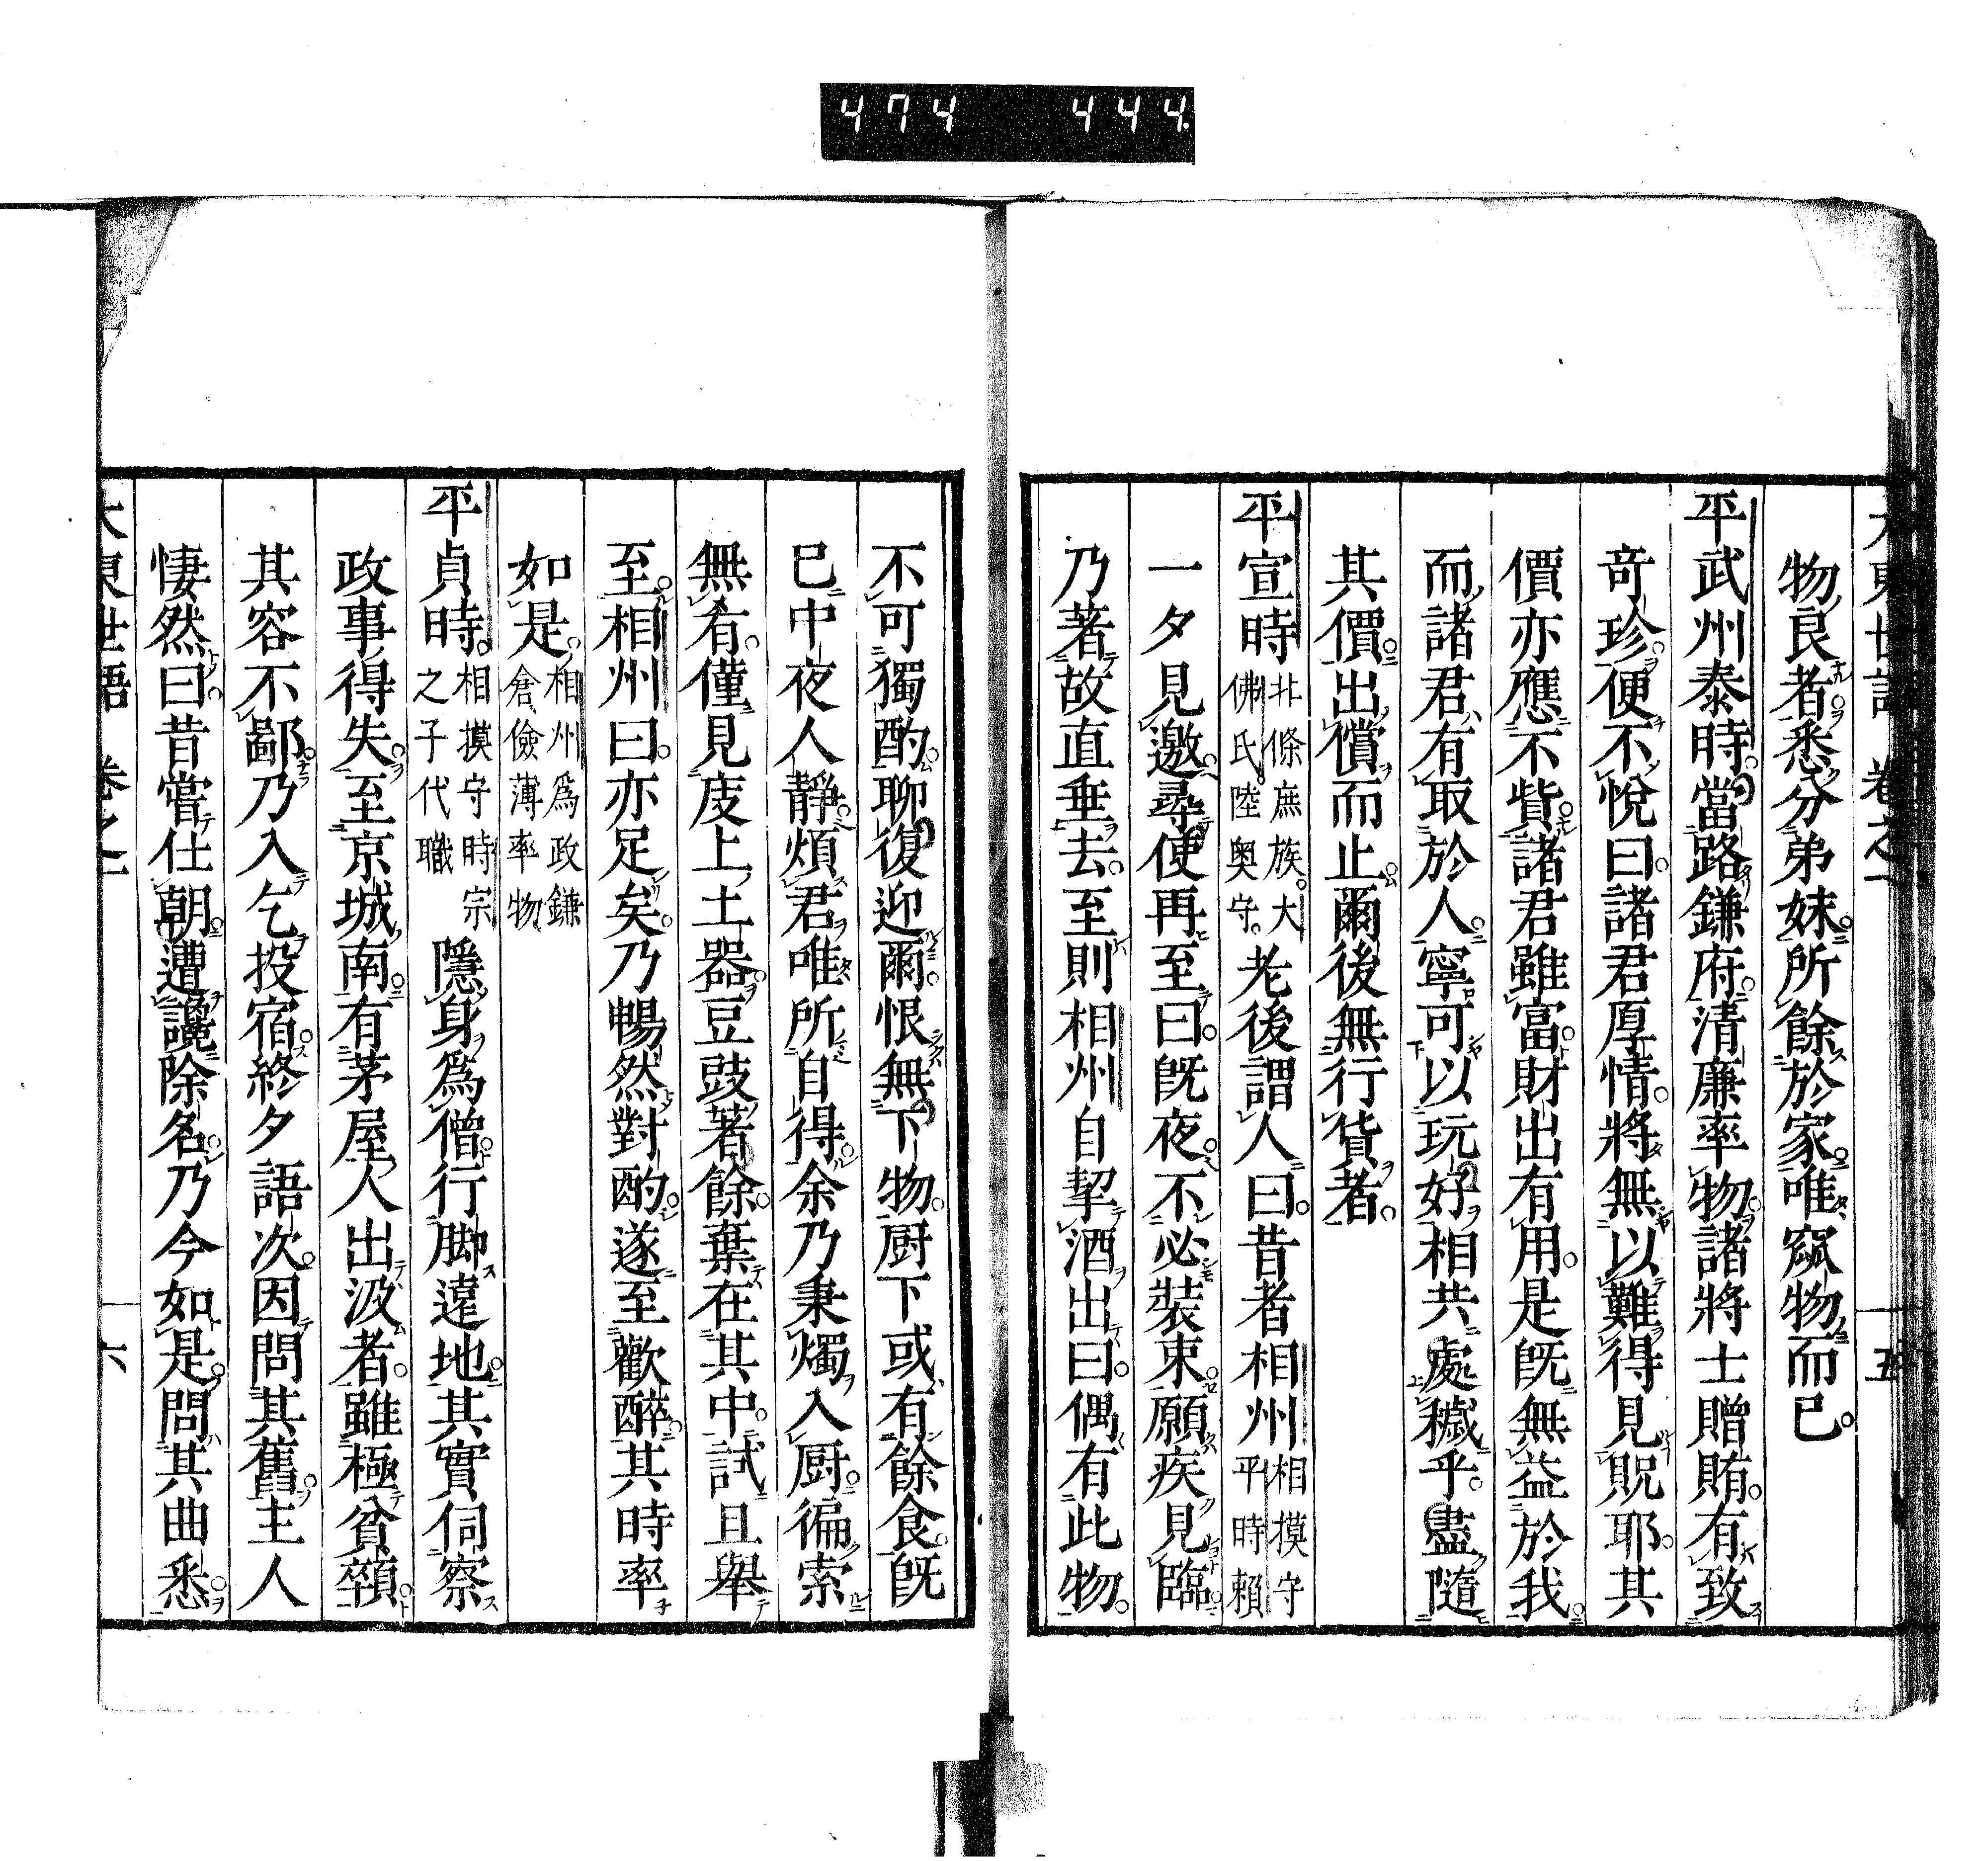 474 444.
大東世語 卷之一 五
物良者悉分弟妹所餘於家唯窳物而已
平武州泰時當路鎌府清廉率物諸將士贈賄有致
奇珍便不悅曰諸君厚情將無以難得見貺耶其
價亦應不貲諸君雖富財出有用是旣無益於我
而諸君有取於人寧可以玩好相共處穢乎盡隨
其價出償而止爾後無行貨者
平宣時北條庶族大
佛氏陸奧守老後謂人曰昔者相州相摸守
平時賴
一夕見邀尋使再至曰旣夜不必裝束願疾見臨
乃著故直垂去至則相州自挈酒出曰偶有此物
不可獨酌聊復迎爾恨無下物厨下或有餘食旣
已中夜人靜煩君唯所自得余乃秉燭入厨徧索
無有僅見庋上土器豆豉著餘棄在其中試且舉
至相州曰亦足矣乃暢然對酌遂至歡醉其時率
如是相州爲政鎌
倉儉薄率物
平貞時相摸守時宗
之子代職隱身爲僧行脚遠地其實伺察
政事得失至京城南有茅屋人出汲者雖極貧顇
其容不鄙乃入乞投宿終夕語次因問其舊主人
悽然曰昔嘗仕朝遭讒除名乃今如是問其曲悉
大東世語 卷之一 六